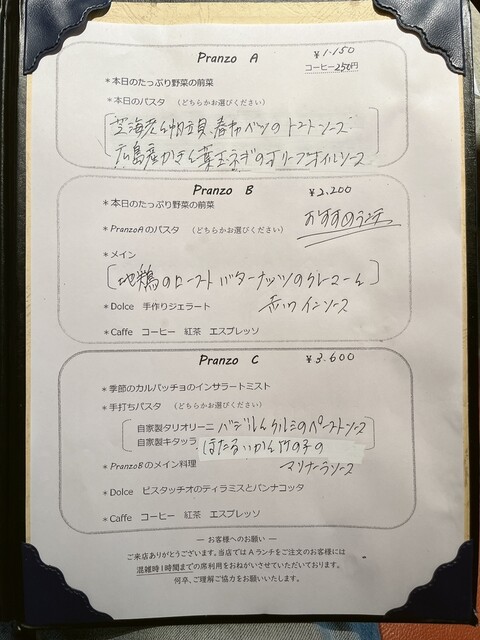 Pranzo A ¥1.150
コーヒー250円
*本日のたっぷり野菜の前菜
*本日のパスタ （どちらかお選びください）
芝海老と帆立貝、春キャベツのトマトソース
広島産かきと葉玉ネギのオリーブオイルソース
Pranzo B ¥2,200
*本日のたっぷり野菜の前菜
おすすめランチ
*PranzoAのパスタ （どちらかお選びください）
*メイン
地鶏のロースト バターナッツのクレマと
赤ワインソース
*Dolce 手作りジェラート
*Caffe コーヒー 紅茶 エスプレッソ
Pranzo C ¥3.600
*季節のカルパッチョのインサラートミスト
*手打ちパスタ （どちらかお選びください）
自家製タリオリーニ バジルとクルミのペーストソース
自家製キタッラ ほたるいかと竹の子の
マリナーラソース
*PranzoBのメイン料理
*Dolce ピスタチオのティラミスとパンナコッタ
*Caffe コーヒー 紅茶 エスプレッソ
― お客様へのお願い ―
ご来店ありがとうございます。当店ではAランチをご注文のお客様には
混雑時1時間までの席利用をおねがいさせていただいております。
何卒、ご理解ご協力をお願いいたします。